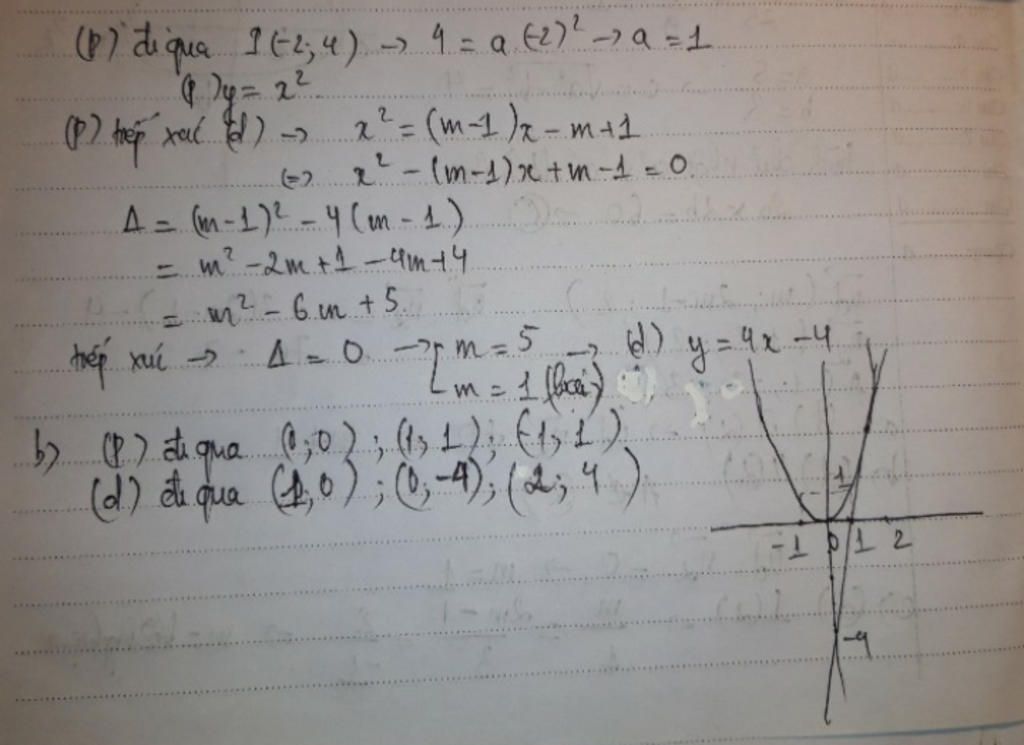 (P) đi qua I(-2; 4) → 4 = a (-2)² → a = 1
(P) y = x²
(P) tiếp xúc (d) → x² = (m-1)x - m+1
(=> x² - (m-1)x + m - 1 = 0.
Δ = (m-1)² - 4(m - 1)
= m² - 2m + 1 - 4m + 4
= m² - 6m + 5.
tiếp xúc → Δ = 0 → [ m = 5 → (d) y = 4x - 4
m = 1 (loại)
b) (P) đi qua (0; 0) ; (1; 1) ; (-1; 1)
(d) đi qua (1; 0) ; (0; -4) ; (2; 4)
1
-1 0 1 2
-4